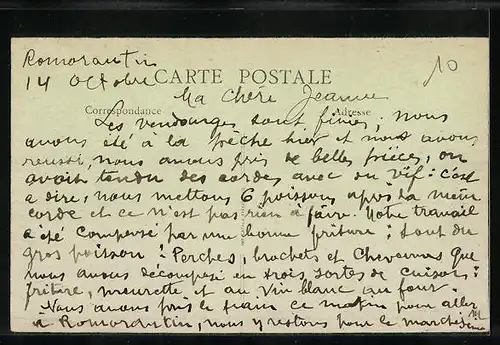 Romorantin
14 Octobre
CARTE POSTALE
10
Correspondance
Adresse
Ma Chère Jeanne
Les vendanges sont finies, nous
avons été à la pêche hier et nous avons
reussi, nous avons pris de belles pièces, on
avait tendu des cordes avec du vif: c'est
a dire, nous mettons 6 poissons après la même
corde et ce n'est pas rien a faire. Notre travail
a été compensé par une bonne friture: tout du
gros poisson: Perches, brochets et Chevennes que
nous avons décomposé en trois sortes de cuisson:
friture, meurette et au vin blanc au four.
Nous avons pris le train ce matin pour aller
à Romorantin, nous y restons pour le marché